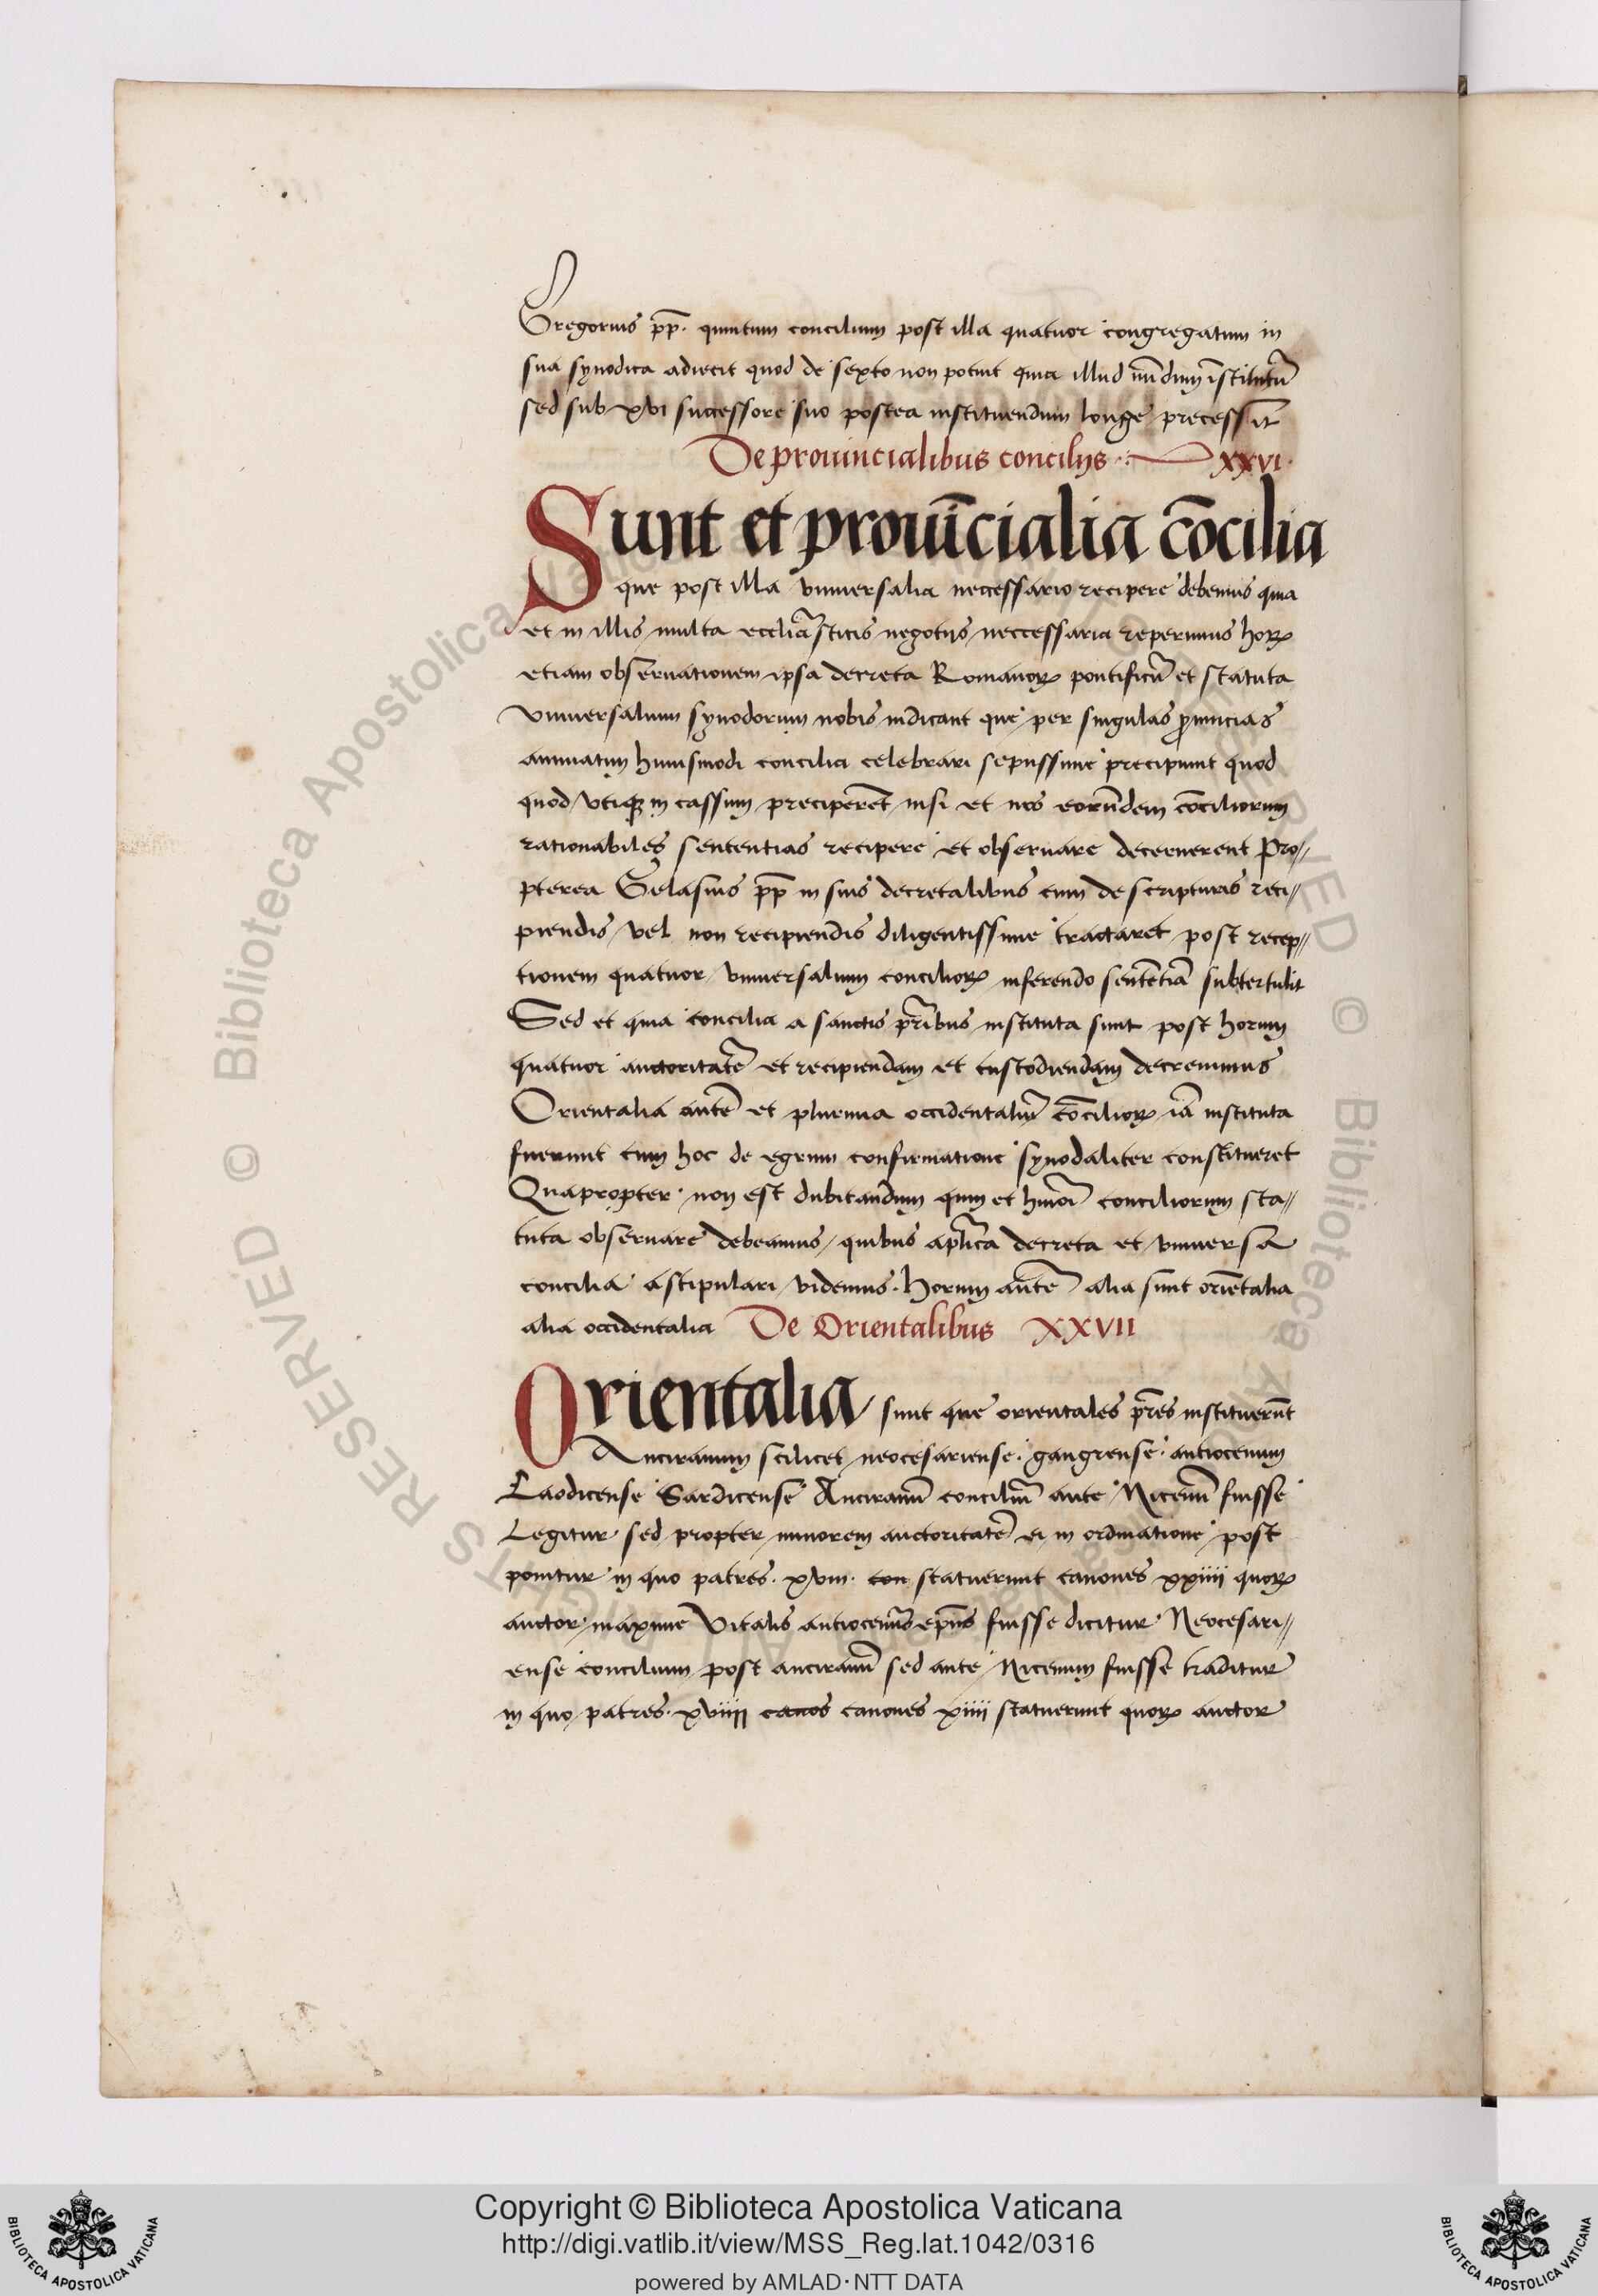 Gregorius p̄p̄. quintum concilium post illa quatuor congregatum in
sua synodica adiecit quod de sexto non potuit quia illud nūdum īstitutū
sed sub xvi successore suo postea instituendum longe precessit
De prouincialibus concilijs .·. XXVI.
Sunt et prouīcialia cōcilia
que post illa vniuersalia neccessario recipere debemus quia
et in illis multa ecclīasticis negotijs neccessaria reperimus hoꝝ
etiam obseruationem ipsa decreta Romanoꝝ pontificū et statuta
vniuersalium synodorum nobis indicant que per singulas ꝓuincias
annuatim huiusmodi concilia celebrari sepissime precipiunt quod
quod vtiqꝫ in cassum preciperēt nisi et nos eorūdem cōciliorum
rationabiles sententias recipere et obseruare decernerent Pro//
pterea Gelasius p̄p̄ in suis decretalibus cum de scripturis reci//
piendis vel non recipiendis diligentissime tractaret post recep//
tionem quatuor vniuersalium concilioꝝ inferendo sentētiā subtertulit
Sed et quia concilia a sanctis pr̄ibus instituta sunt post horum
quatuor auctoritatē et recipiendam et custodiendam decreuimus
Orientalia autē et plurima occidentaliū cōcilioꝝ iā instituta
fuerunt cum hoc de egrum confirmatione synodaliter constitueret
Quapropter non est dubitandum quin et hmōi conciliorum sta//
tuta obseruare debeamus, quibus aplīca decreta et vniuersa
concilia astipulari videmus. horum autē alia sunt oriētalia
alia occidentalia De Orientalibus XXVII
Orientalia sunt que orientales pr̄es instituerūt
Anciranum scilicet neocesariense. gangrense. antiocenum
Laodicense Sardicense Anciranū conciliū ante Nicenū fuisse
Legitur sed propter minorem auctoritatē ei in ordinatione post
ponitur in quo patres. xviii. con statuerunt canones xxiiii quoꝝ
auctor maxime Vitalis antiocenus ep̄us fuisse dicitur Neocesari//
ense concilium post anciranū sed ante Nicenum fuisse traditur
in quo patres. xviiii canos canones xiiii statuerunt quoꝝ auctor
Copyright © Biblioteca Apostolica Vaticana
http://digi.vatlib.it/view/MSS_Reg.lat.1042/0316
powered by AMLAD·NTT DATA
BIBLIOTECA APOSTOLICA VATICANA
BIBLIOTECA APOSTOLICA VATICANA